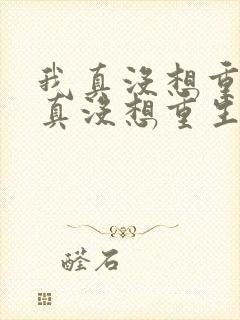 我真没想重
真没想重生
醛石